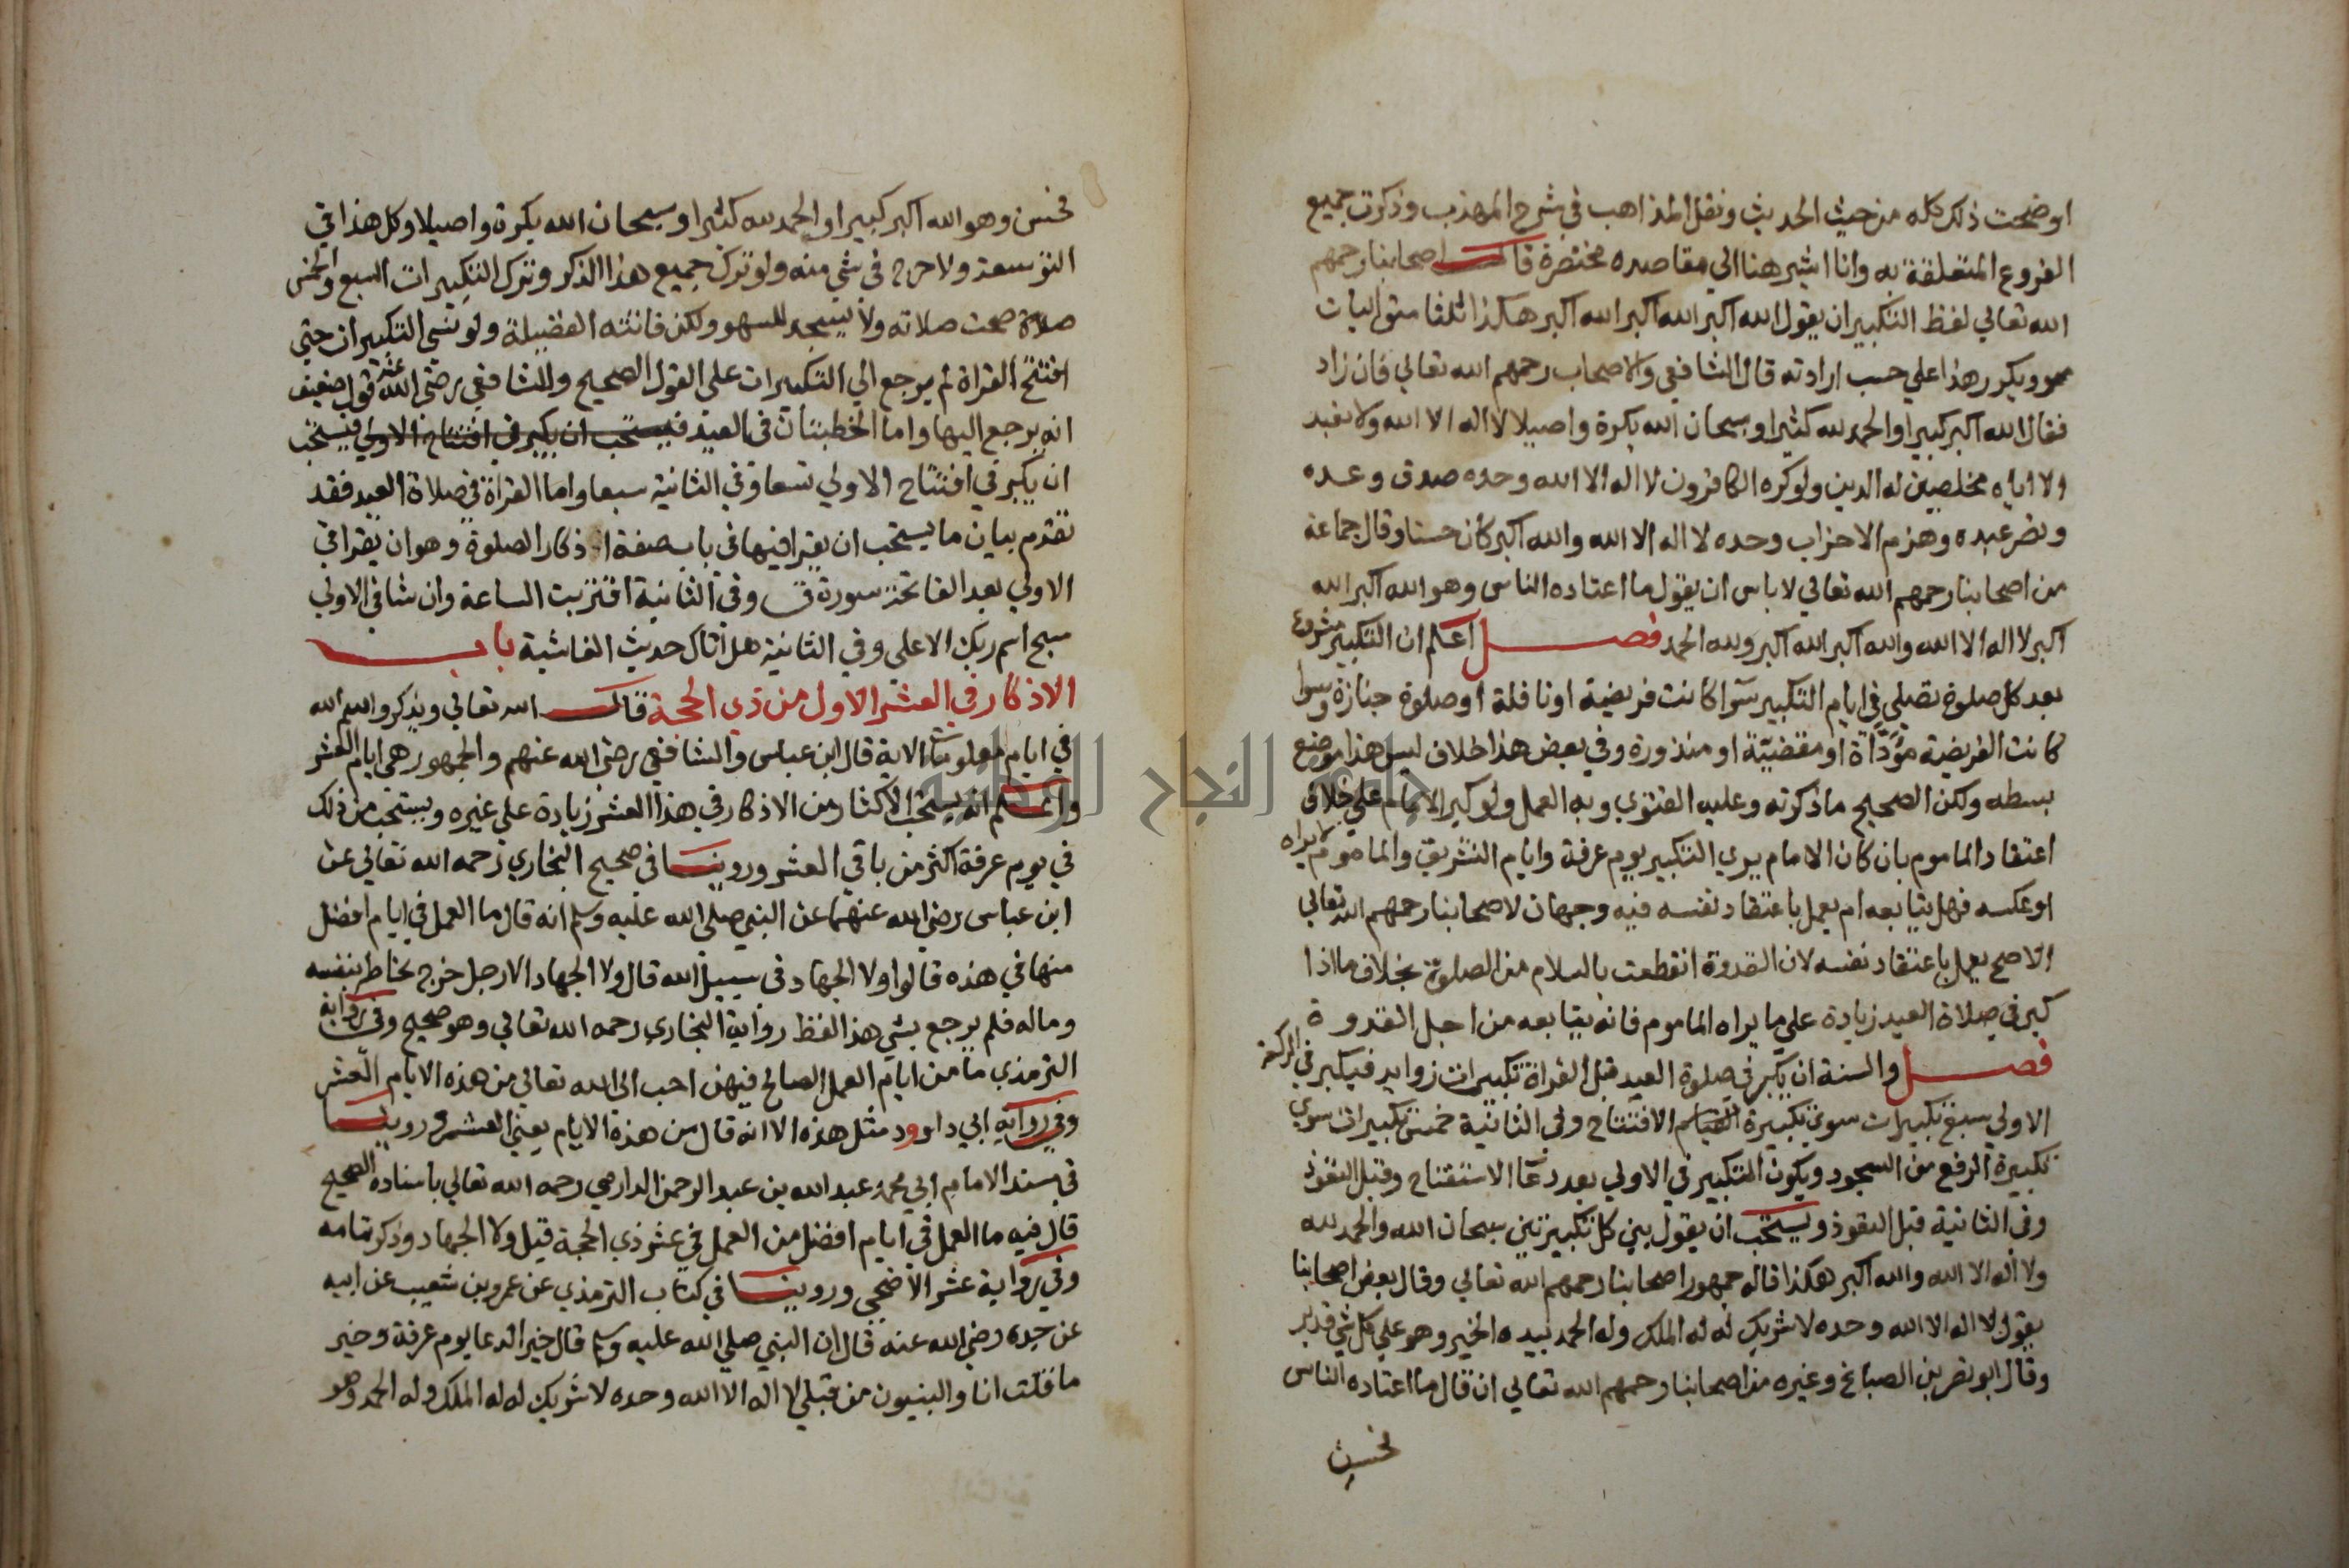 اوضحت ذلك كله من حيث الحديث ونقل المذاهب في شرح المهذب وذكرت جميع
الفروع المتعلقة به وانا اشير هنا الي مقاصده مختصرة قال اصحابنا رحمهم
الله تعالي لفظ التكبير ان يقول الله اكبر الله اكبر الله اكبر هكذا ثلثا متواليات
ويكرر هذا علي حسب ارادته قال الشافعي والاصحاب رحمهم الله تعالي فان زاد
فقال الله اكبر كبيرا والحمد لله كثيرا وسبحان الله بكرة واصيلا لا اله الا الله ولا نعبد
الا اياه مخلصين له الدين ولو كره الكافرون لا اله الا الله وحده صدق وعده
ونصر عبده وهزم الاحزاب وحده لا اله الا الله والله اكبر كان حسنا وقال جماعة
من اصحابنا رحمهم الله تعالي لا باس ان يقول ما اعتاده الناس وهو الله اكبر الله
اكبر لا اله الا الله والله اكبر الله اكبر ولله الحمد فصل اعلم ان التكبير مشروع
بعد كل صلوة تصلي في ايام التكبير سوا كانت فريضة او نافلة او صلوة جنازة وسوا
كانت الفريضة مؤداة او مقضية او منذورة وفي بعض هذا خلاف ليس هذا موضع
بسطه ولكن الصحيح ما ذكرته وعليه الفتوي وبه العمل ولو كبر الامام علي خلاف
اعتقاد الماموم بان كان الامام يري التكبير يوم عرفة وايام التشريق والماموم لا يراه
او عكسه فهل يتابعه ام يعمل باعتقاد نفسه فيه وجهان لاصحابنا رحمهم الله تعالي
الاصح يعمل باعتقاد نفسه لان القدوة انقطعت بالسلام من الصلوة بخلاف ما اذا
كبر في صلاة العيد زيادة علي ما يراه الماموم فانه يتابعه من اجل القدوة
فصل والسنة ان يكبر في صلوة العيد قبل القراة تكبيرات زوايد فيكبر في الركعة
الاولي سبع تكبيرات سوي تكبيرة الافتتاح وفي الثانية خمس تكبيرات سوي
تكبيرة الرفع من السجود ويكون التكبير في الاولي بعد دعا الاستفتاح وقبل التعوذ
وفي الثانية قبل التعوذ ويستحب ان يقول بين كل تكبيرتين سبحان الله والحمد لله
ولا اله الا الله والله اكبر هكذا قاله جمهور اصحابنا رحمهم الله تعالي وقال بعض اصحابنا
يقول لا اله الا الله وحده لا شريك له له الملك وله الحمد بيده الخير وهو علي كل شي قدير
وقال ابو نصر بن الصباغ وغيره من اصحابنا رحمهم الله تعالي ان قال ما اعتاده الناس
فحسن
فحسن وهو الله اكبر كبيرا والحمد لله كثيرا وسبحان الله بكرة واصيلا وكل هذا في
التوسعة ولا حرج في شي منه ولو ترك جميع هذا الذكر وترك التكبيرات السبع والخمس
صلاة صحت صلاته ولا يسجد للسهو ولكن فاتته الفضيلة ولو نسي التكبيرات حتي
افتتح القراة لم يرجع الي التكبيرات علي القول الصحيح وللشافعي رضي الله عنه قول ضعيف
انه يرجع اليها واما الخطبتان في العيد فيستحب ان يكبر في افتتاح الاولي فيستحب
ان يكبر في افتتاح الاولي تسعا وفي الثانية سبعا واما القراة في صلاة العيد فقد
تقدم بيان ما يستحب ان يقرا فيها في باب صفة اذكار الصلوة وهو ان يقرا في
الاولي بعد الفاتحة سورة ق وفي الثانية اقتربت الساعة وان شا في الاولي
سبح اسم ربك الاعلي وفي الثانية هل اتاك حديث الغاشية باب
الاذكار في العشر الاول من ذي الحجة قال الله تعالي ويذكروا اسم الله
في ايام معلومات الاية قال ابن عباس والشافعي رضي الله عنهم والجمهور هي ايام العشر
واعلم انه يستحب الاكثار من الاذكار في هذا العشر زيادة علي غيره ويستحب من ذلك
في يوم عرفة اكثر من باقي العشر وروينا في صحيح البخاري رحمه الله تعالي عن
ابن عباس رضي الله عنهما عن النبي صلي الله عليه وسلم انه قال ما العمل في ايام افضل
منها في هذه قالوا ولا الجهاد في سبيل الله قال ولا الجهاد الا رجل خرج يخاطر بنفسه
وماله فلم يرجع بشي هذا لفظ رواية البخاري رحمه الله تعالي وهو صحيح وفي رواية
الترمذي ما من ايام العمل الصالح فيهن احب الى الله تعالي من هذه الايام العشر
وفي رواية ابي داوود مثل هذه الا انه قال من هذه الايام يعني العشر وروينا
في مسند الامام ابي محمد عبد الله بن عبد الرحمن الدارمي رحمه الله تعالي باسناده الصحيح
قال فيه ما العمل في ايام افضل من العمل في عشر ذي الحجة قيل ولا الجهاد وذكر تمامه
وفي رواية عشر الاضحي وروينا في كتاب الترمذي عن عمرو بن شعيب عن ابيه
عن جده رضي الله عنه قال ان النبي صلي الله عليه وسلم قال خير الدعا يوم عرفة وخير
ما قلت انا والنبيون من قبلي لا اله الا الله وحده لا شريك له له الملك وله الحمد وهو